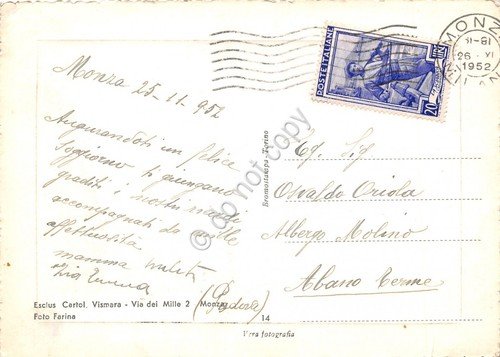 MONZA
18-19
26 . VI
1952
MILANO
POSTE ITALIANE
20
Monza 25-11-952
Augurandoti un felice
soggiorno ti giungano
graditi i nostri
accompagnati da mille
affettuosità
mamma
Zia
do not copy
Bromostampa - Torino
Eg. Sig
Osvaldo Oriola
Albergo Molino
Abano Terme
(Padova)
Esclus Cartol. Vismara - Via dei Mille 2 Monza
Foto Farina
14
Vera fotografia